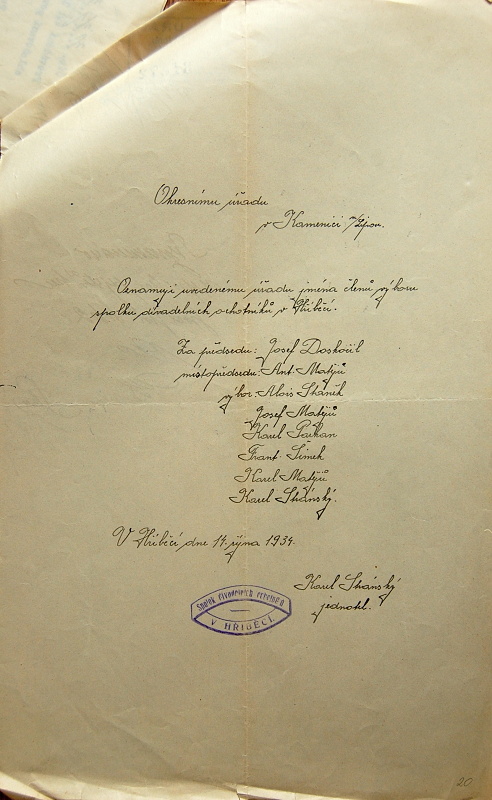 Okresnímu úřadu
v Kamenici n/Lipou.
Oznamuji uvedenému úřadu jména členů výboru
spolku divadelních ochotníků v Hříběcí.
Za předsedu: Josef Doskočil
místopředsedu: Ant. Matějů
výbor: Alois Staněk
Josef Matějů
Karel
Frant. Šimek
Karel Matějů
Karel Stránský.
V Hříběcí dne 14. října 1934.
Karel Stránský
jednatel.
Spolek divadelních ochotníků
V HŘÍBĚCÍ.
20